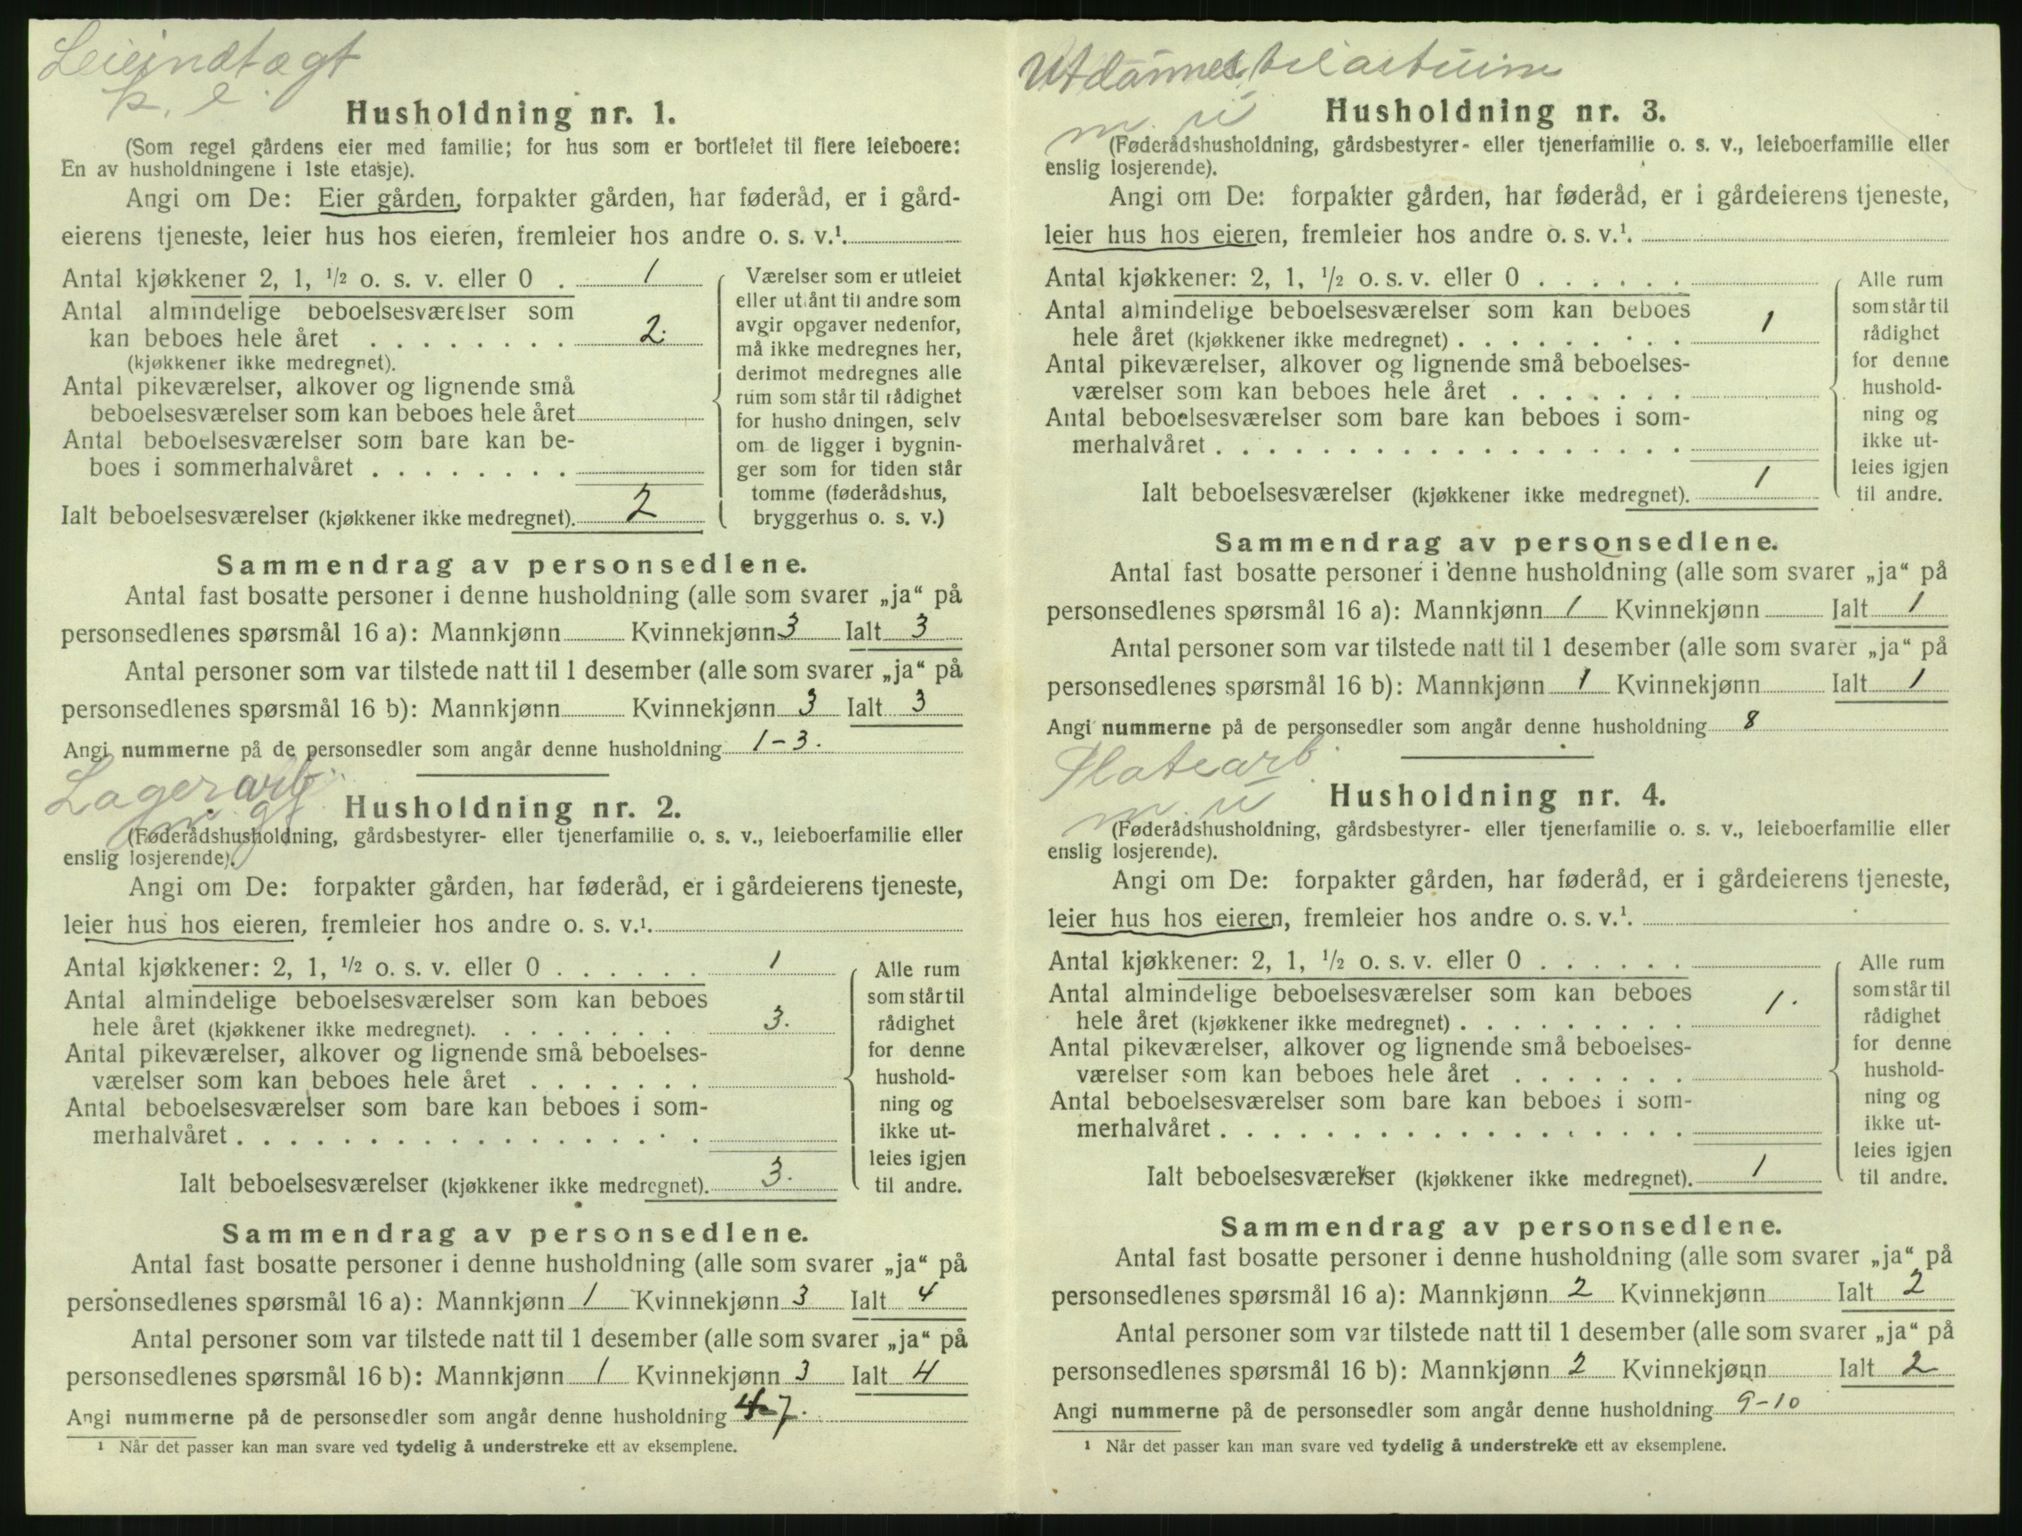 Leieindtægt
p. e.
Husholdning nr. 1.
(Som regel gårdens eier med familie; for hus som er bortleiet til flere leieboere:
En av husholdningene i 1ste etasje).
Angi om De: Eier gården, forpakter gården, har føderåd, er i gård-
eierens tjeneste, leier hus hos eieren, fremleier hos andre o. s. v.¹.
Antal kjøkkener 2, 1, ½ o. s. v. eller 0 . 1
Antal almindelige beboelsesværelser som
kan beboes hele året . . . . . . . . 2.
(kjøkkener ikke medregnet).
Antal pikeværelser, alkover og lignende små
beboelsesværelser som kan beboes hele året
Antal beboelsesværelser som bare kan be-
boes i sommerhalvåret . . . . . . . .
Ialt beboelsesværelser (kjøkkener ikke medregnet). 2
Værelser som er utleiet
eller utlånt til andre som
avgir opgaver nedenfor,
må ikke medregnes her,
derimot medregnes alle
rum som står til rådighet
for husho dningen, selv
om de ligger i bygnin-
ger som for tiden står
tomme (føderådshus,
bryggerhus o. s. v.)
Sammendrag av personsedlene.
Antal fast bosatte personer i denne husholdning (alle som svarer „ja“ på
personsedlenes spørsmål 16 a): Mannkjønn Kvinnekjønn 3 Ialt 3
Antal personer som var tilstede natt til 1 desember (alle som svarer „ja“ på
personsedlenes spørsmål 16 b): Mannkjønn Kvinnekjønn 3 Ialt 3
Angi nummerne på de personsedler som angår denne husholdning 1-3.
Lagerarb.
Husholdning nr. 2.
(Føderådshusholdning, gårdsbestyrer- eller tjenerfamilie o. s. v., leieboerfamilie eller
enslig losjerende).
Angi om De: forpakter gården, har føderåd, er i gårdeierens tjeneste,
leier hus hos eieren, fremleier hos andre o. s. v.¹.
Antal kjøkkener: 2, 1, ½ o. s. v. eller 0 . . . . . . 1
Antal almindelige beboelsesværelser som kan beboes
hele året (kjøkkener ikke medregnet). . . . . . . . 3.
Antal pikeværelser, alkover og lignende små beboelses-
værelser som kan beboes hele året . . . . . . .
Antal beboelsesværelser som bare kan beboes i som-
merhalvåret . . . . . . . . . . . . . . . . . .
Ialt beboelsesværelser (kjøkkener ikke medregnet). 3.
Alle rum
som står til
rådighet
for denne
hushold-
ning og
ikke ut-
leies igjen
til andre.
Sammendrag av personsedlene.
Antal fast bosatte personer i denne husholdning (alle som svarer „ja“ på
personsedlenes spørsmål 16 a): Mannkjønn 1 Kvinnekjønn 3 Ialt 4
Antal personer som var tilstede natt til 1 desember (alle som svarer „ja“ på
personsedlenes spørsmål 16 b): Mannkjønn 1 Kvinnekjønn 3 Ialt 4
Angi nummerne på de personsedler som angår denne husholdning 4-7.
¹ Når det passer kan man svare ved tydelig å understreke ett av eksemplene.
Utdannes
m. u
Husholdning nr. 3.
(Føderådshusholdning, gårdsbestyrer- eller tjenerfamilie o. s. v., leieboerfamilie eller
enslig losjerende).
Angi om De: forpakter gården, har føderåd, er i gårdeierens tjeneste,
leier hus hos eieren, fremleier hos andre o. s. v.¹.
Antal kjøkkener: 2, 1, ½ o. s. v. eller 0 . . . . . .
Antal almindelige beboelsesværelser som kan beboes
hele året (kjøkkener ikke medregnet) . . . . . . . . . 1
Antal pikeværelser, alkover og lignende små beboelses-
værelser som kan beboes hele året . . . . . . .
Antal beboelsesværelser som bare kan beboes i som-
merhalvåret . . . . . . . . . . . . . . . . . .
Ialt beboelsesværelser (kjøkkener ikke medregnet). 1
Alle rum
som står til
rådighet
for denne
hushold-
ning og
ikke ut-
leies igjen
til andre.
Sammendrag av personsedlene.
Antal fast bosatte personer i denne husholdning (alle som svarer „ja“ på
personsedlenes spørsmål 16 a): Mannkjønn 1 Kvinnekjønn Ialt 1
Antal personer som var tilstede natt til 1 desember (alle som svarer „ja“ på
personsedlenes spørsmål 16 b): Mannkjønn 1 Kvinnekjønn Ialt 1
Angi nummerne på de personsedler som angår denne husholdning 8
Platearb.
m. u
Husholdning nr. 4.
(Føderådshusholdning, gårdsbestyrer- eller tjenerfamilie o. s. v., leieboerfamilie eller
enslig losjerende).
Angi om De: forpakter gården, har føderåd, er i gårdeierens tjeneste,
leier hus hos eieren, fremleier hos andre o. s. v.¹.
Antal kjøkkener: 2, 1, ½ o. s. v. eller 0 . . . . . .
Antal almindelige beboelsesværelser som kan beboes
hele året (kjøkkener ikke medregnet) . . . . . . . . . 1.
Antal pikeværelser, alkover og lignende små beboelses-
værelser som kan beboes hele året . . . . . . .
Antal beboelsesværelser som bare kan beboes i som-
merhalvåret . . . . . . . . . . . . . . . . . .
Ialt beboelsesværelser (kjøkkener ikke medregnet). 1
Alle rum
som står til
rådighet
for denne
hushold-
ning og
ikke ut-
leies igjen
til andre.
Sammendrag av personsedlene.
Antal fast bosatte personer i denne husholdning (alle som svarer „ja“ på
personsedlenes spørsmål 16 a): Mannkjønn 2 Kvinnekjønn Ialt 2
Antal personer som var tilstede natt til 1 desember (alle som svarer „ja“ på
personsedlenes spørsmål 16 b): Mannkjønn 2 Kvinnekjønn Ialt 2
Angi nummerne på de personsedler som angår denne husholdning 9-10
¹ Når det passer kan man svare ved tydelig å understreke ett av eksemplene.